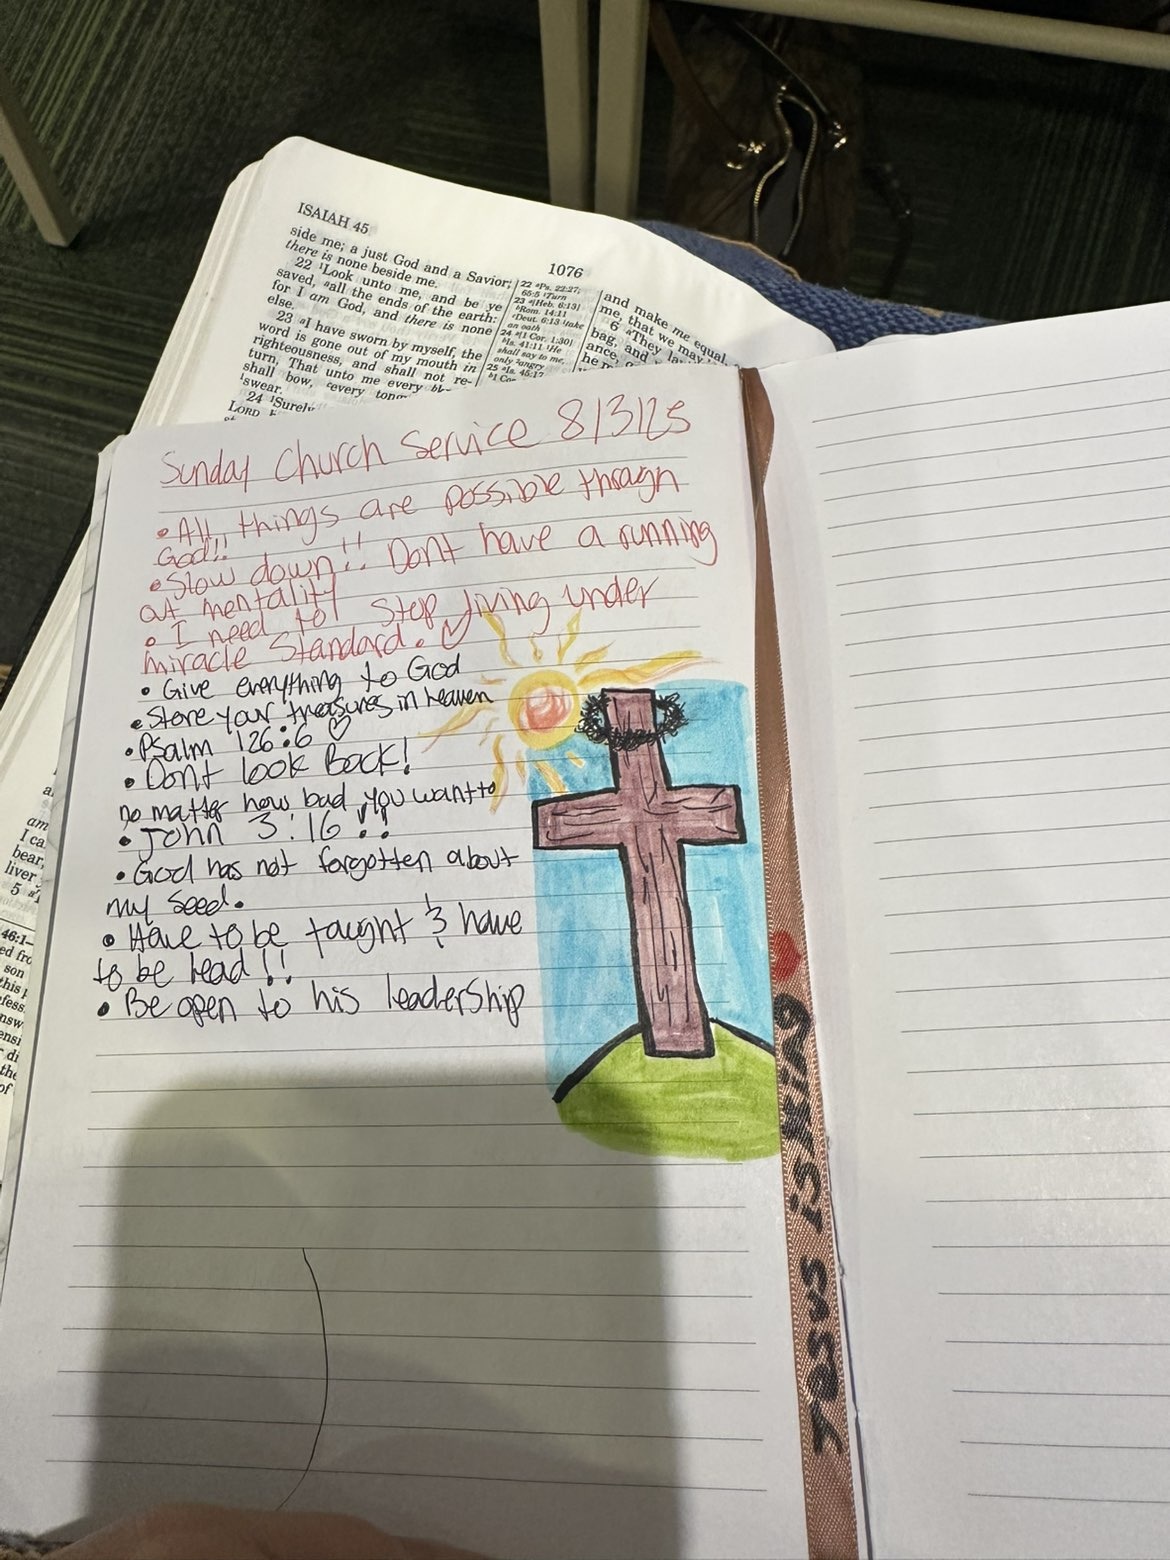 ISAIAH 45
1076
side me; a just God and a Savior;
there is none beside me.
22 ¹Look unto me, and be ye
saved, ᵃall the ends of the earth:
for I am God, and there is none
else.
23 ᵃI have sworn by myself, the
word is gone out of my mouth in
righteousness, and shall not re-
turn, That unto me every
shall bow, ᶜevery
¹swear.
24 ¹Surely
LORD
22 ᵃPs. 22:27;
65:5 ¹Turn
23 ᵃ[Heb. 6:13]
ᵇRom. 14:11
ᶜDeut. 6:13 ¹take
an oath
24 ᵃ[1 Cor. 1:30]
ᵇIs. 41:11 ¹He
shall say to me,
only ²angry
25 ᵃIs. 45:17
and make me equal,
me, that we may
6 ᵃThey
bag, and
Sunday Church Service 8/3/25
• All things are possible throagn
God!!
• Slow down!! Dont have a running
out mentality
• I need to stop living under
miracle Standard.
• Give everything to God
• Store your treasures in heaven
• Psalm 126:6 ♡
• Dont look Back!
no matter how bad you want to
• John 3:16!!
• God has not forgotten about
my seed.
• Have to be taught & have
to be lead!!
• Be open to his leadership
Jesus is King
am
bear,
liver
5
46:1–
son
of